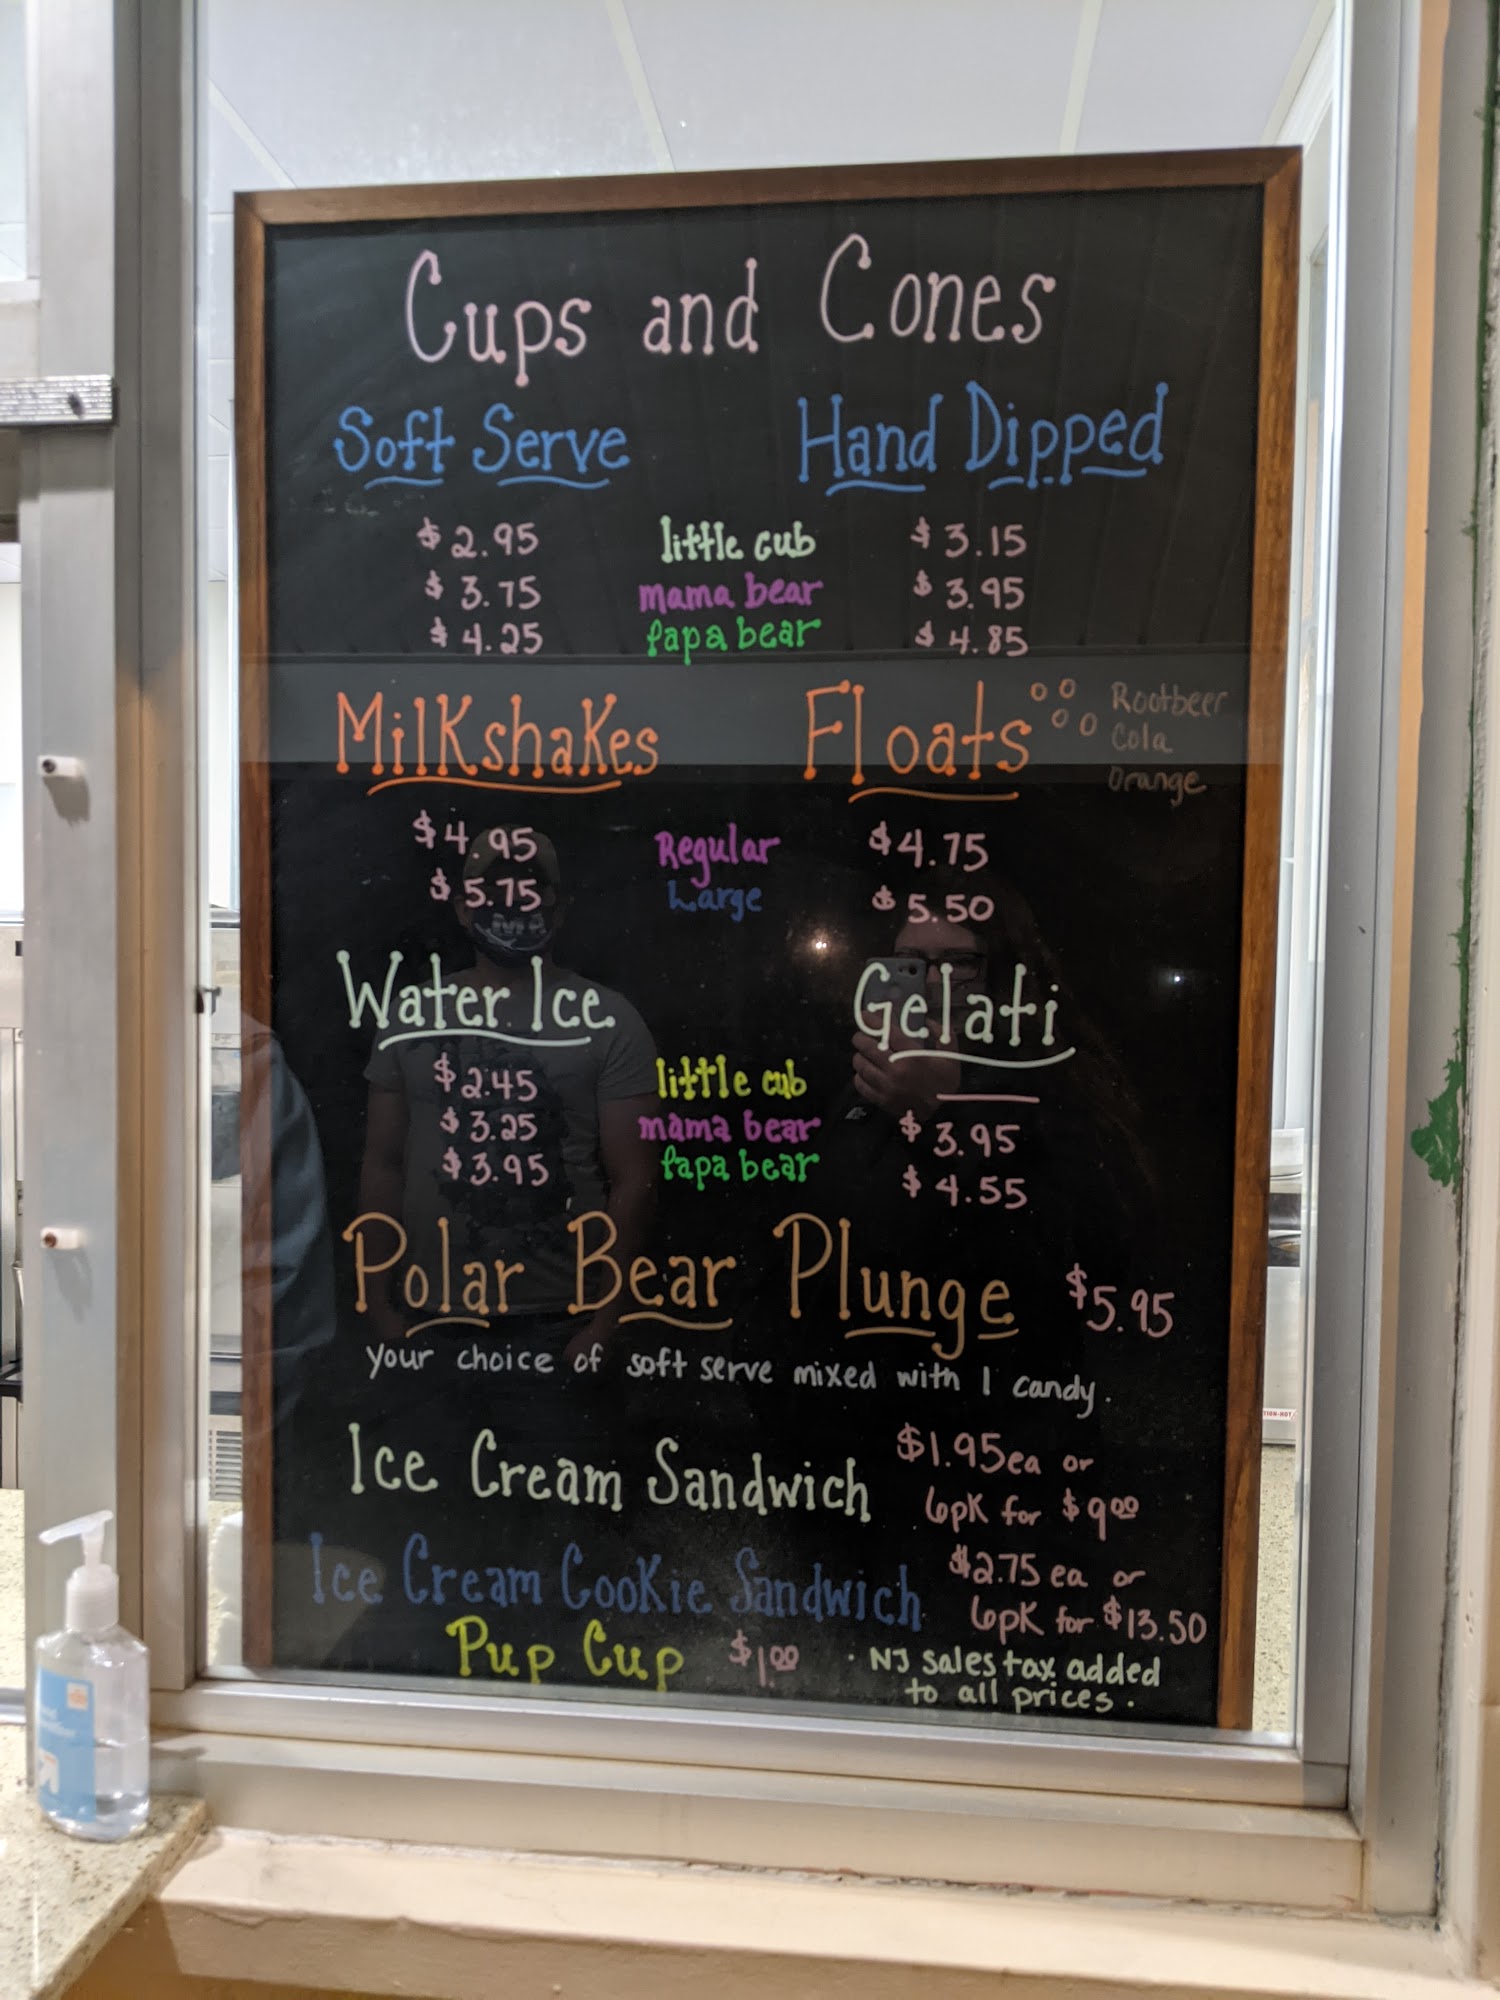 Cups and Cones
Soft Serve Hand Dipped
$2.95 little cub $3.15
$3.75 mama bear $3.95
$4.25 papa bear $4.85
Milkshakes Floats Rootbeer
Cola
Orange
$4.95 Regular $4.75
$5.75 Large $5.50
Water Ice Gelati
$2.45 little cub
$3.25 mama bear $3.95
$3.95 papa bear $4.55
Polar Bear Plunge $5.95
your choice of soft serve mixed with 1 candy.
Ice Cream Sandwich $1.95 ea or
6pk for $9.00
Ice Cream Cookie Sandwich $2.75 ea or
6pk for $13.50
Pup Cup $1.00 · NJ sales tax added
to all prices.